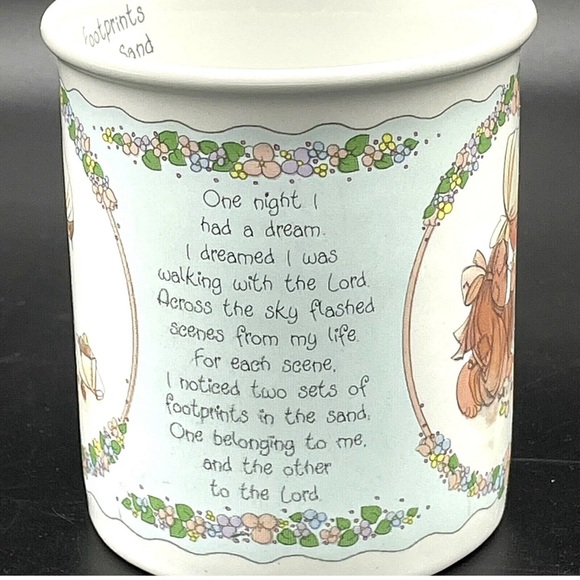 footprints
Sand
One night I
had a dream.
I dreamed I was
walking with the Lord.
Across the sky flashed
scenes from my life.
For each scene,
I noticed two sets of
footprints in the sand;
One belonging to me,
and the other
to the Lord.